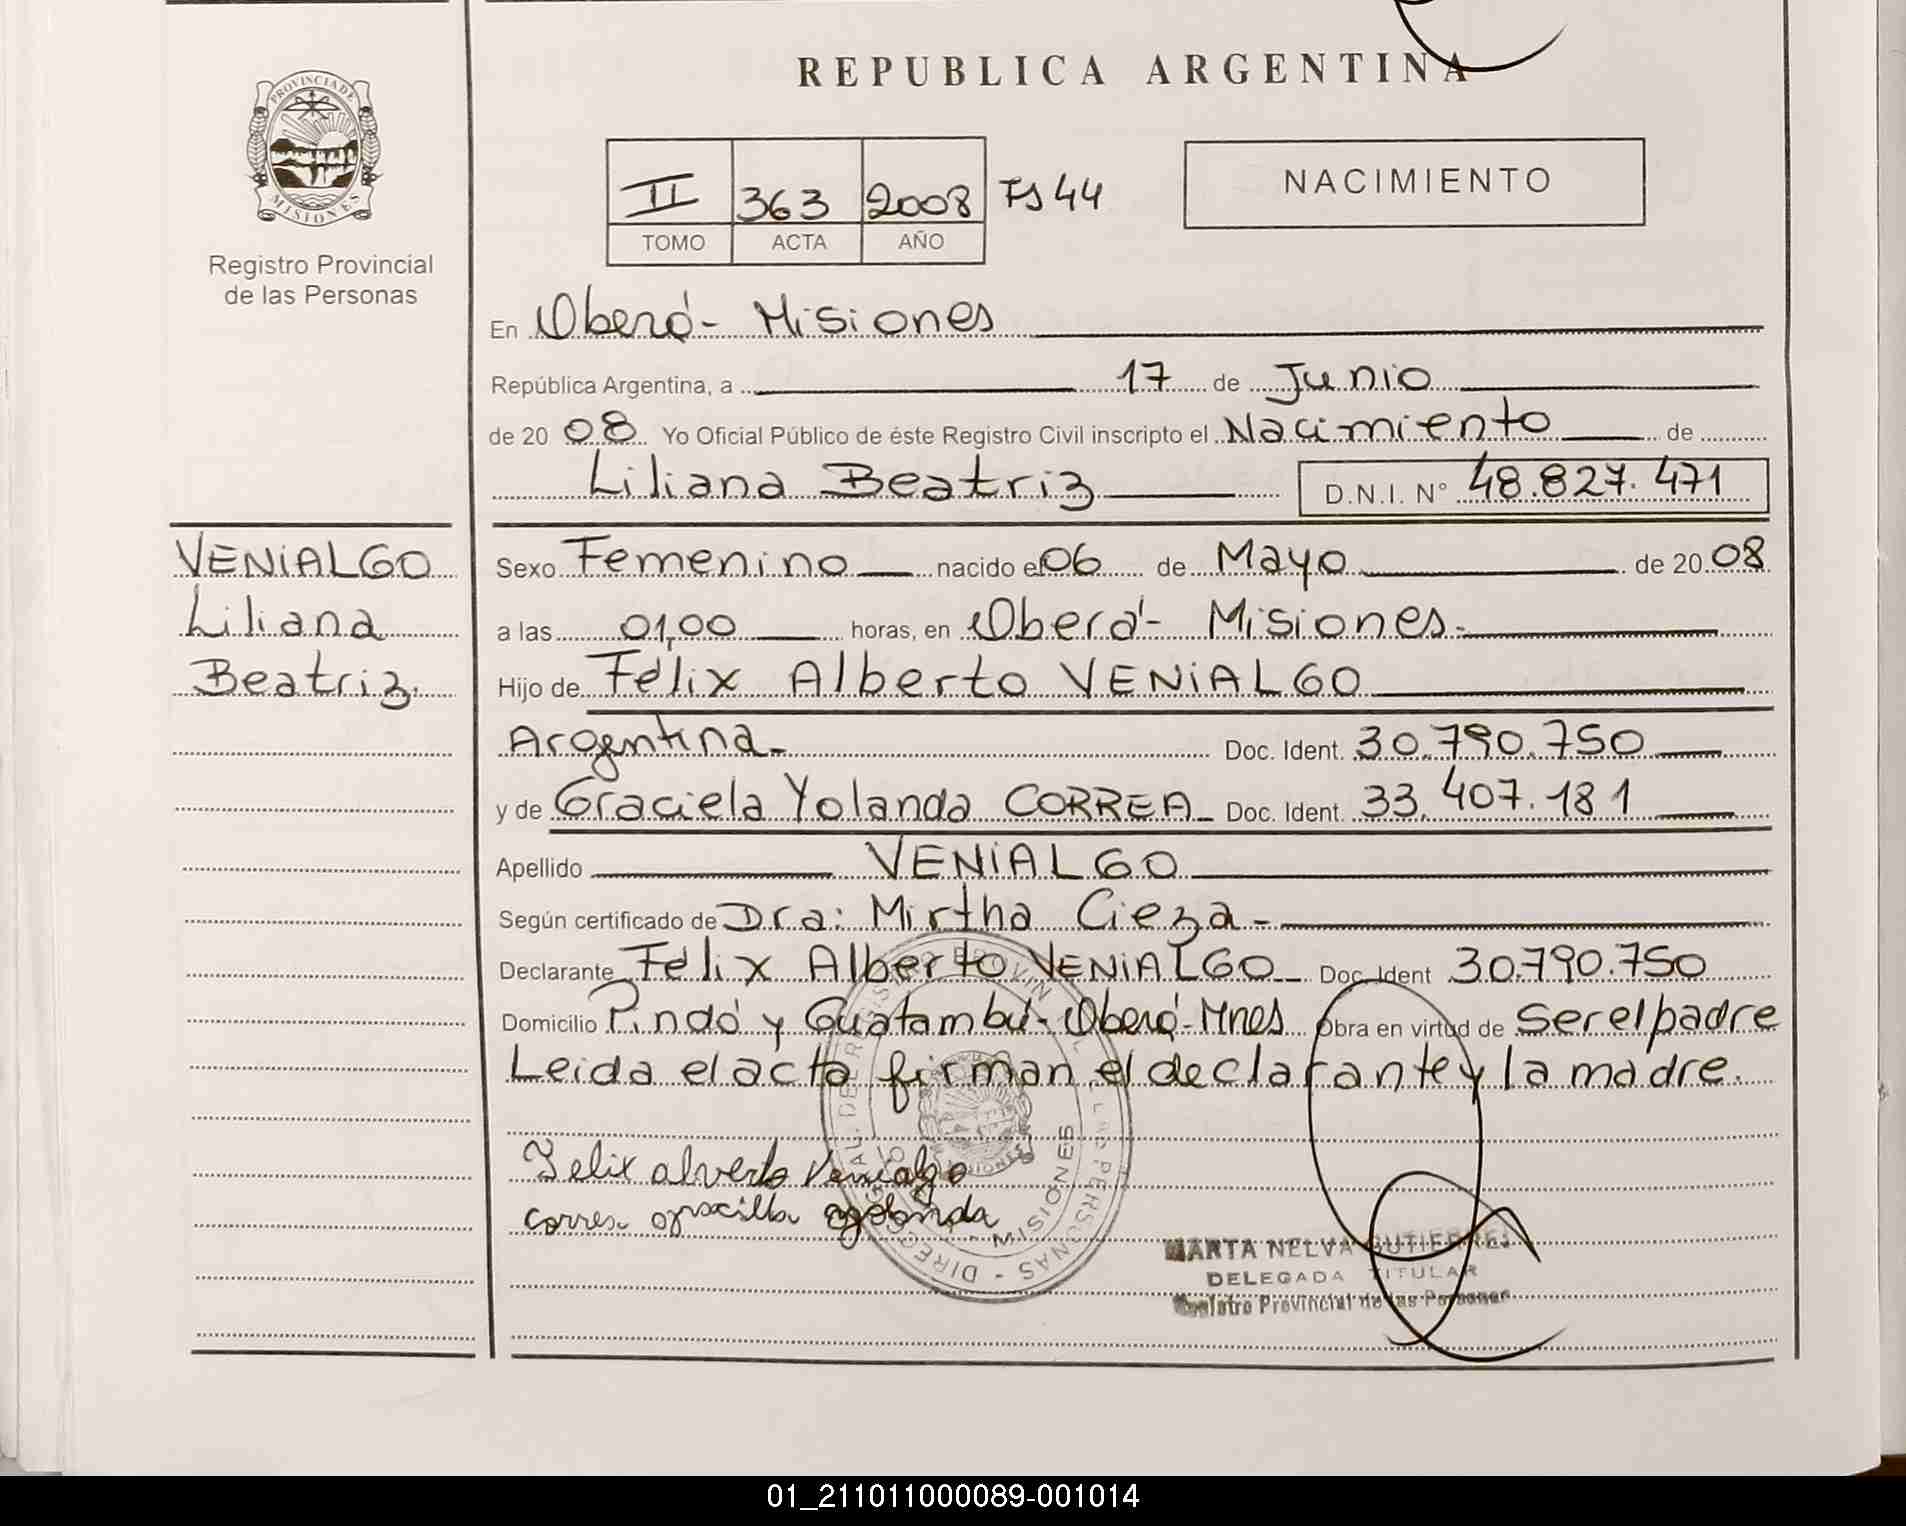 REPUBLICA ARGENTINA
PROVINCIA DE MISIONES
Registro Provincial
de las Personas
II 363 2008 Fs 44
TOMO ACTA AÑO
NACIMIENTO
En Oberá- Misiones
República Argentina, a 17 de Junio
de 20 08 Yo Oficial Público de éste Registro Civil inscripto el Nacimiento de
Liliana Beatriz D.N.I. N° 48.827.471
VENIALGO
Liliana
Beatriz.
Sexo Femenino nacido el 06 de Mayo de 20 08
a las 01,00 horas, en Oberá- Misiones.
Hijo de Félix Alberto VENIALGO
Argentina- Doc. Ident. 30.790.750
y de Graciela Yolanda CORREA Doc. Ident. 33.407.181
Apellido VENIALGO
Según certificado de Dra: Mirtha Cieza-
Declarante Félix Alberto VENIALGO Doc. Ident 30.790.750
Domicilio Pindó y Guatambú- Oberá- Mnes Obra en virtud de ser el padre
Leida el acta firman el declarante y la madre.
Felix alverto Venialgo
correa
DIRECCION GRAL. DEL REGISTRO PROVINCIAL DE LAS PERSONAS - MISIONES
MARTA NELVA GUTIERREZ
DELEGADA TITULAR
Registro Provincial de las Personas
01_211011000089-001014